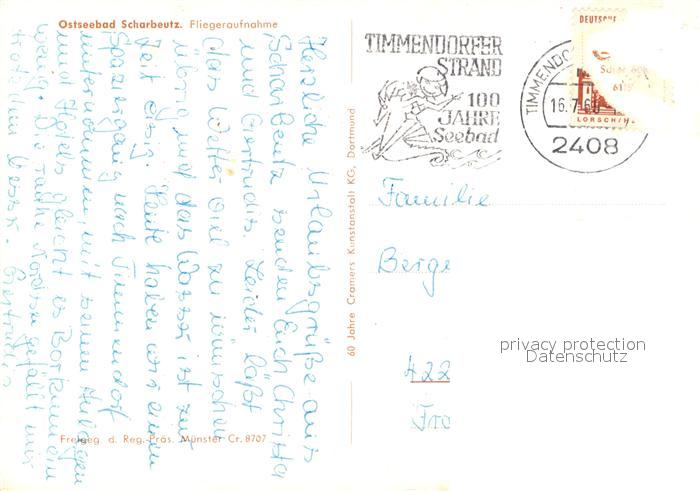 Ostseebad Scharbeutz. Fliegeraufnahme
Herzliche Urlaubsgrüße aus
Scharbeutz senden Euch Christa
und Gertrudis. Leider läßt
das Wetter viel zu wünschen
übrig und das Wasser ist zur
Zeit eisig. Heute haben wir einen
Spaziergang nach Timmendorf
unternommen, mit seinen Anlagen
und Hotels gleicht es Borkum ein
wenig. Die Nordsee gefällt mir
trotzdem besser. Gertrudis
Freigeg. d. Reg.-Präs. Münster Cr. 8707
60 Jahre Cramers Kunstanstalt KG, Dortmund
TIMMENDORFER
STRAND
100
JAHRE
Seebad
TIMMENDO
16.7.6
2408
DEUTSCHE
LORSCH/H
Familie
Berge
422
Fro
privacy protection
Datenschutz